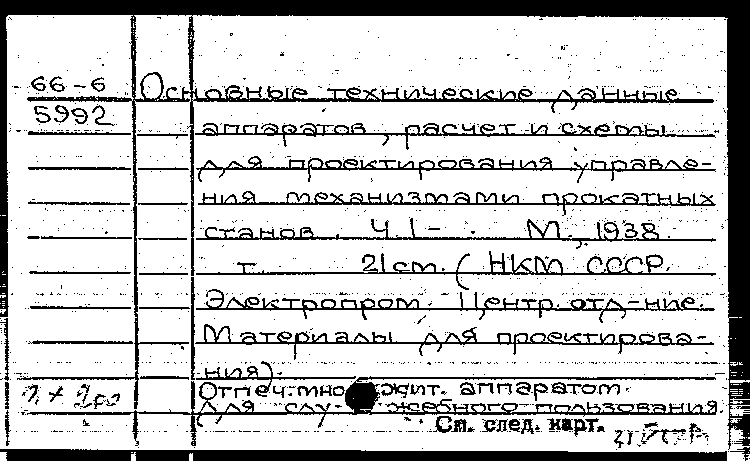 66-6 Основные технические данные
5992 аппаратов, расчет и схемы
для проектирования управле-
ния механизмами прокатных
станов. Ч. I- . М., 1938.
т. 21 см. (НКМ СССР.
Электропром. Центр. отд-ние.
Материалы для проектирова-
ния).
Отпеч. множит. аппаратом.
Для служебного пользования.
См. след. карт.